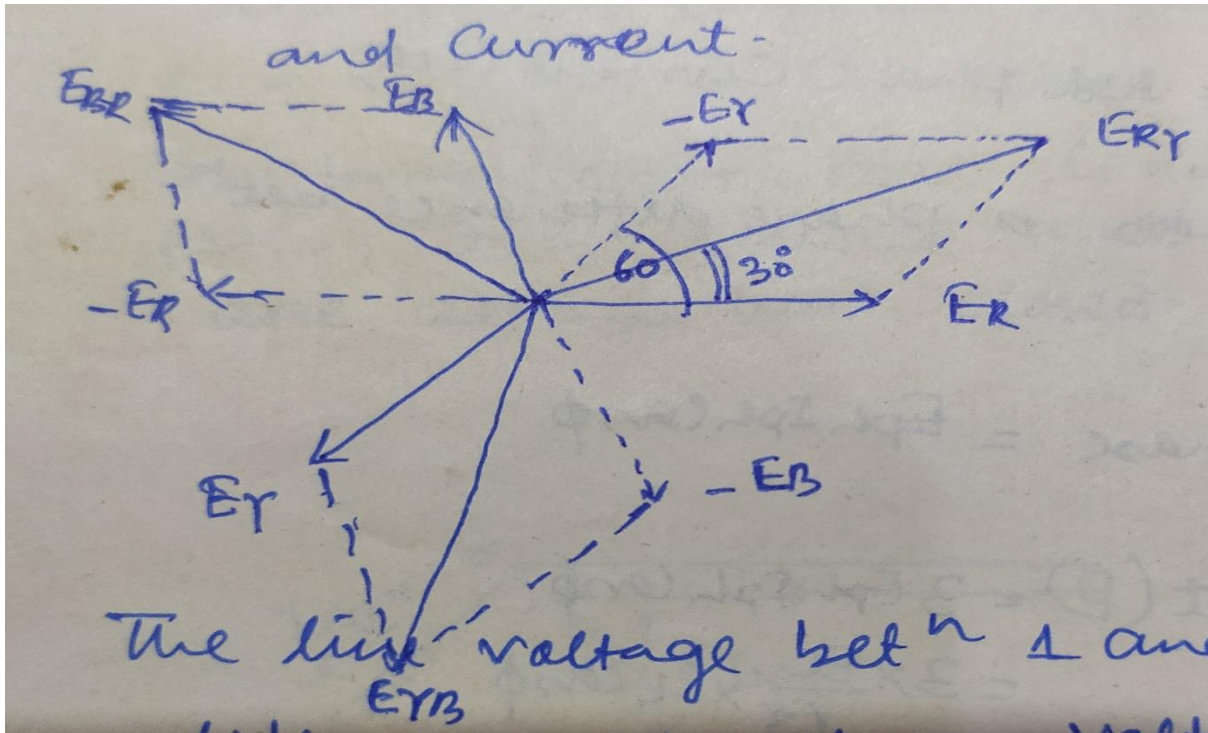 and Current-
EBR EB -EY ERY
60 30°
-ER ER
EY -EB
The line voltage betn 1 and
EYB